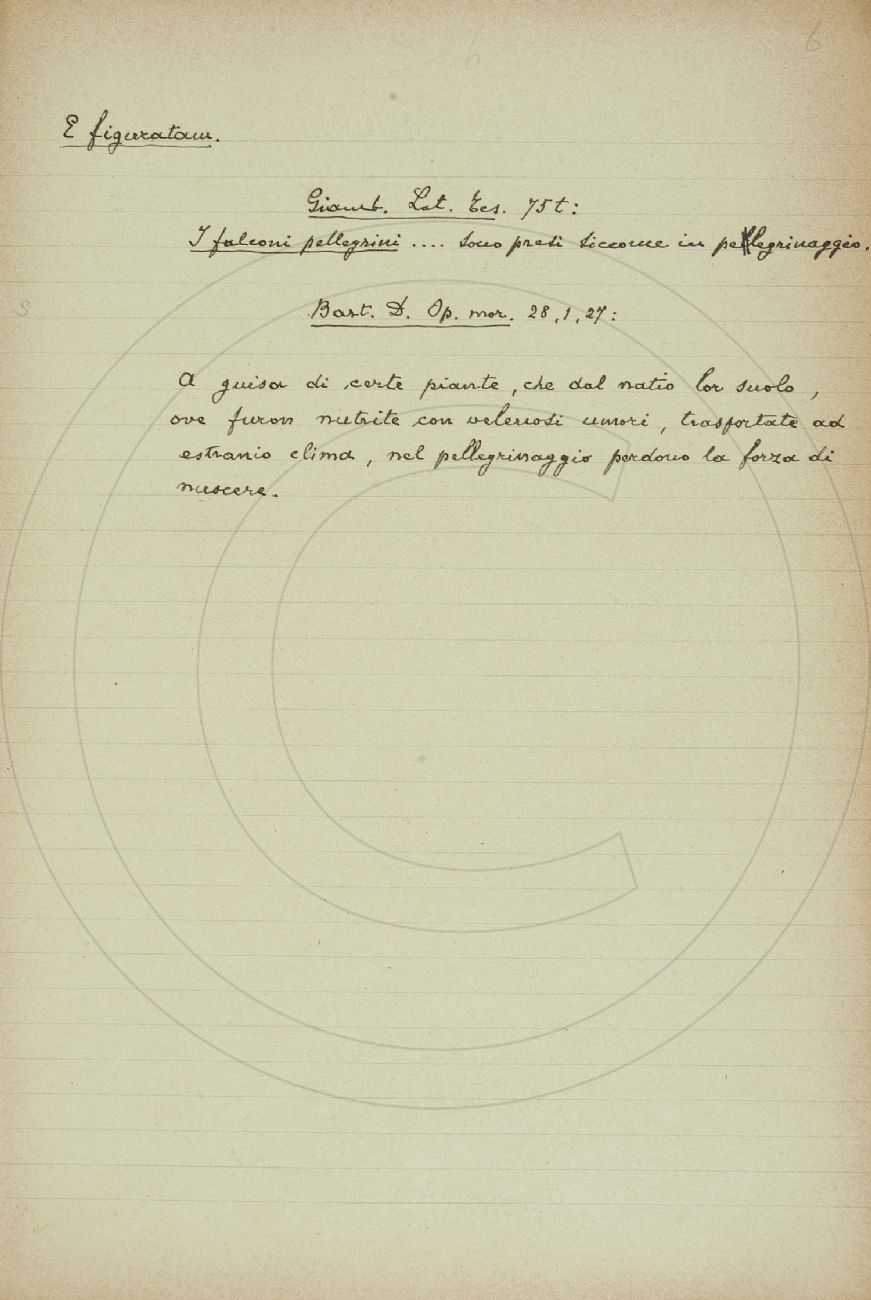 6
E figuratam.
Giamb. Lat. Tes. 75t:
I falconi pellegrini .... sono presi siccome in pellegrinaggio.
Bart. D. Op. mor. 28,1,27:
A guisa di certe piante, che dal natio lor suolo,
ove furon nutrite con velenosi umori, trasportate ad
estranio clima, nel pellegrinaggio perdono la forza di
nuocere.